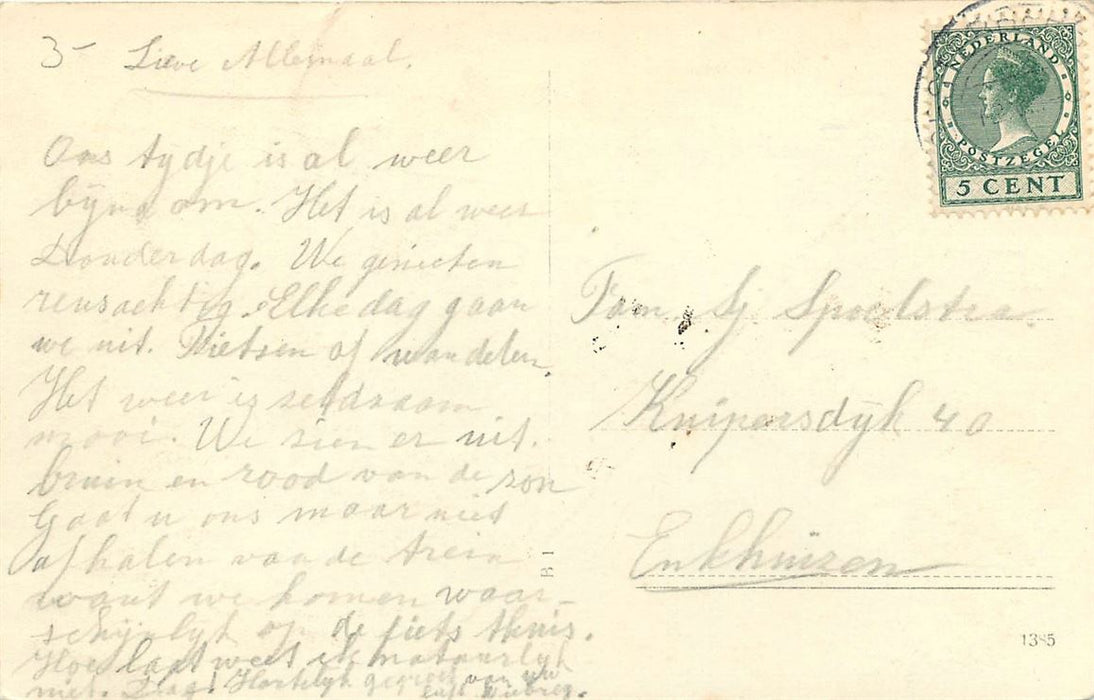 3-
Lieve Allemaal.
Ons tydje is al weer
byna om. Het is al weer
Donderdag. We genieten
reusachtig. Elke dag gaan
we uit. Fietsen of wandelen.
Het weer is seldzaam
mooi. We zien er uit.
bruin en rood van de zon
Gaat u ons maar niet
afhalen van de trein
want we komen waar-
schijnlyk op de fiets thuis.
Hoe laat weet ik natuurlyk
niet. Dag! Hartelyk gegroet van uw
NEDERLAND
POSTZEGEL
5 CENT
Fam. Sj. Spoelstra.
Kuipersdyk 40
Enkhuizen
R 1
1385